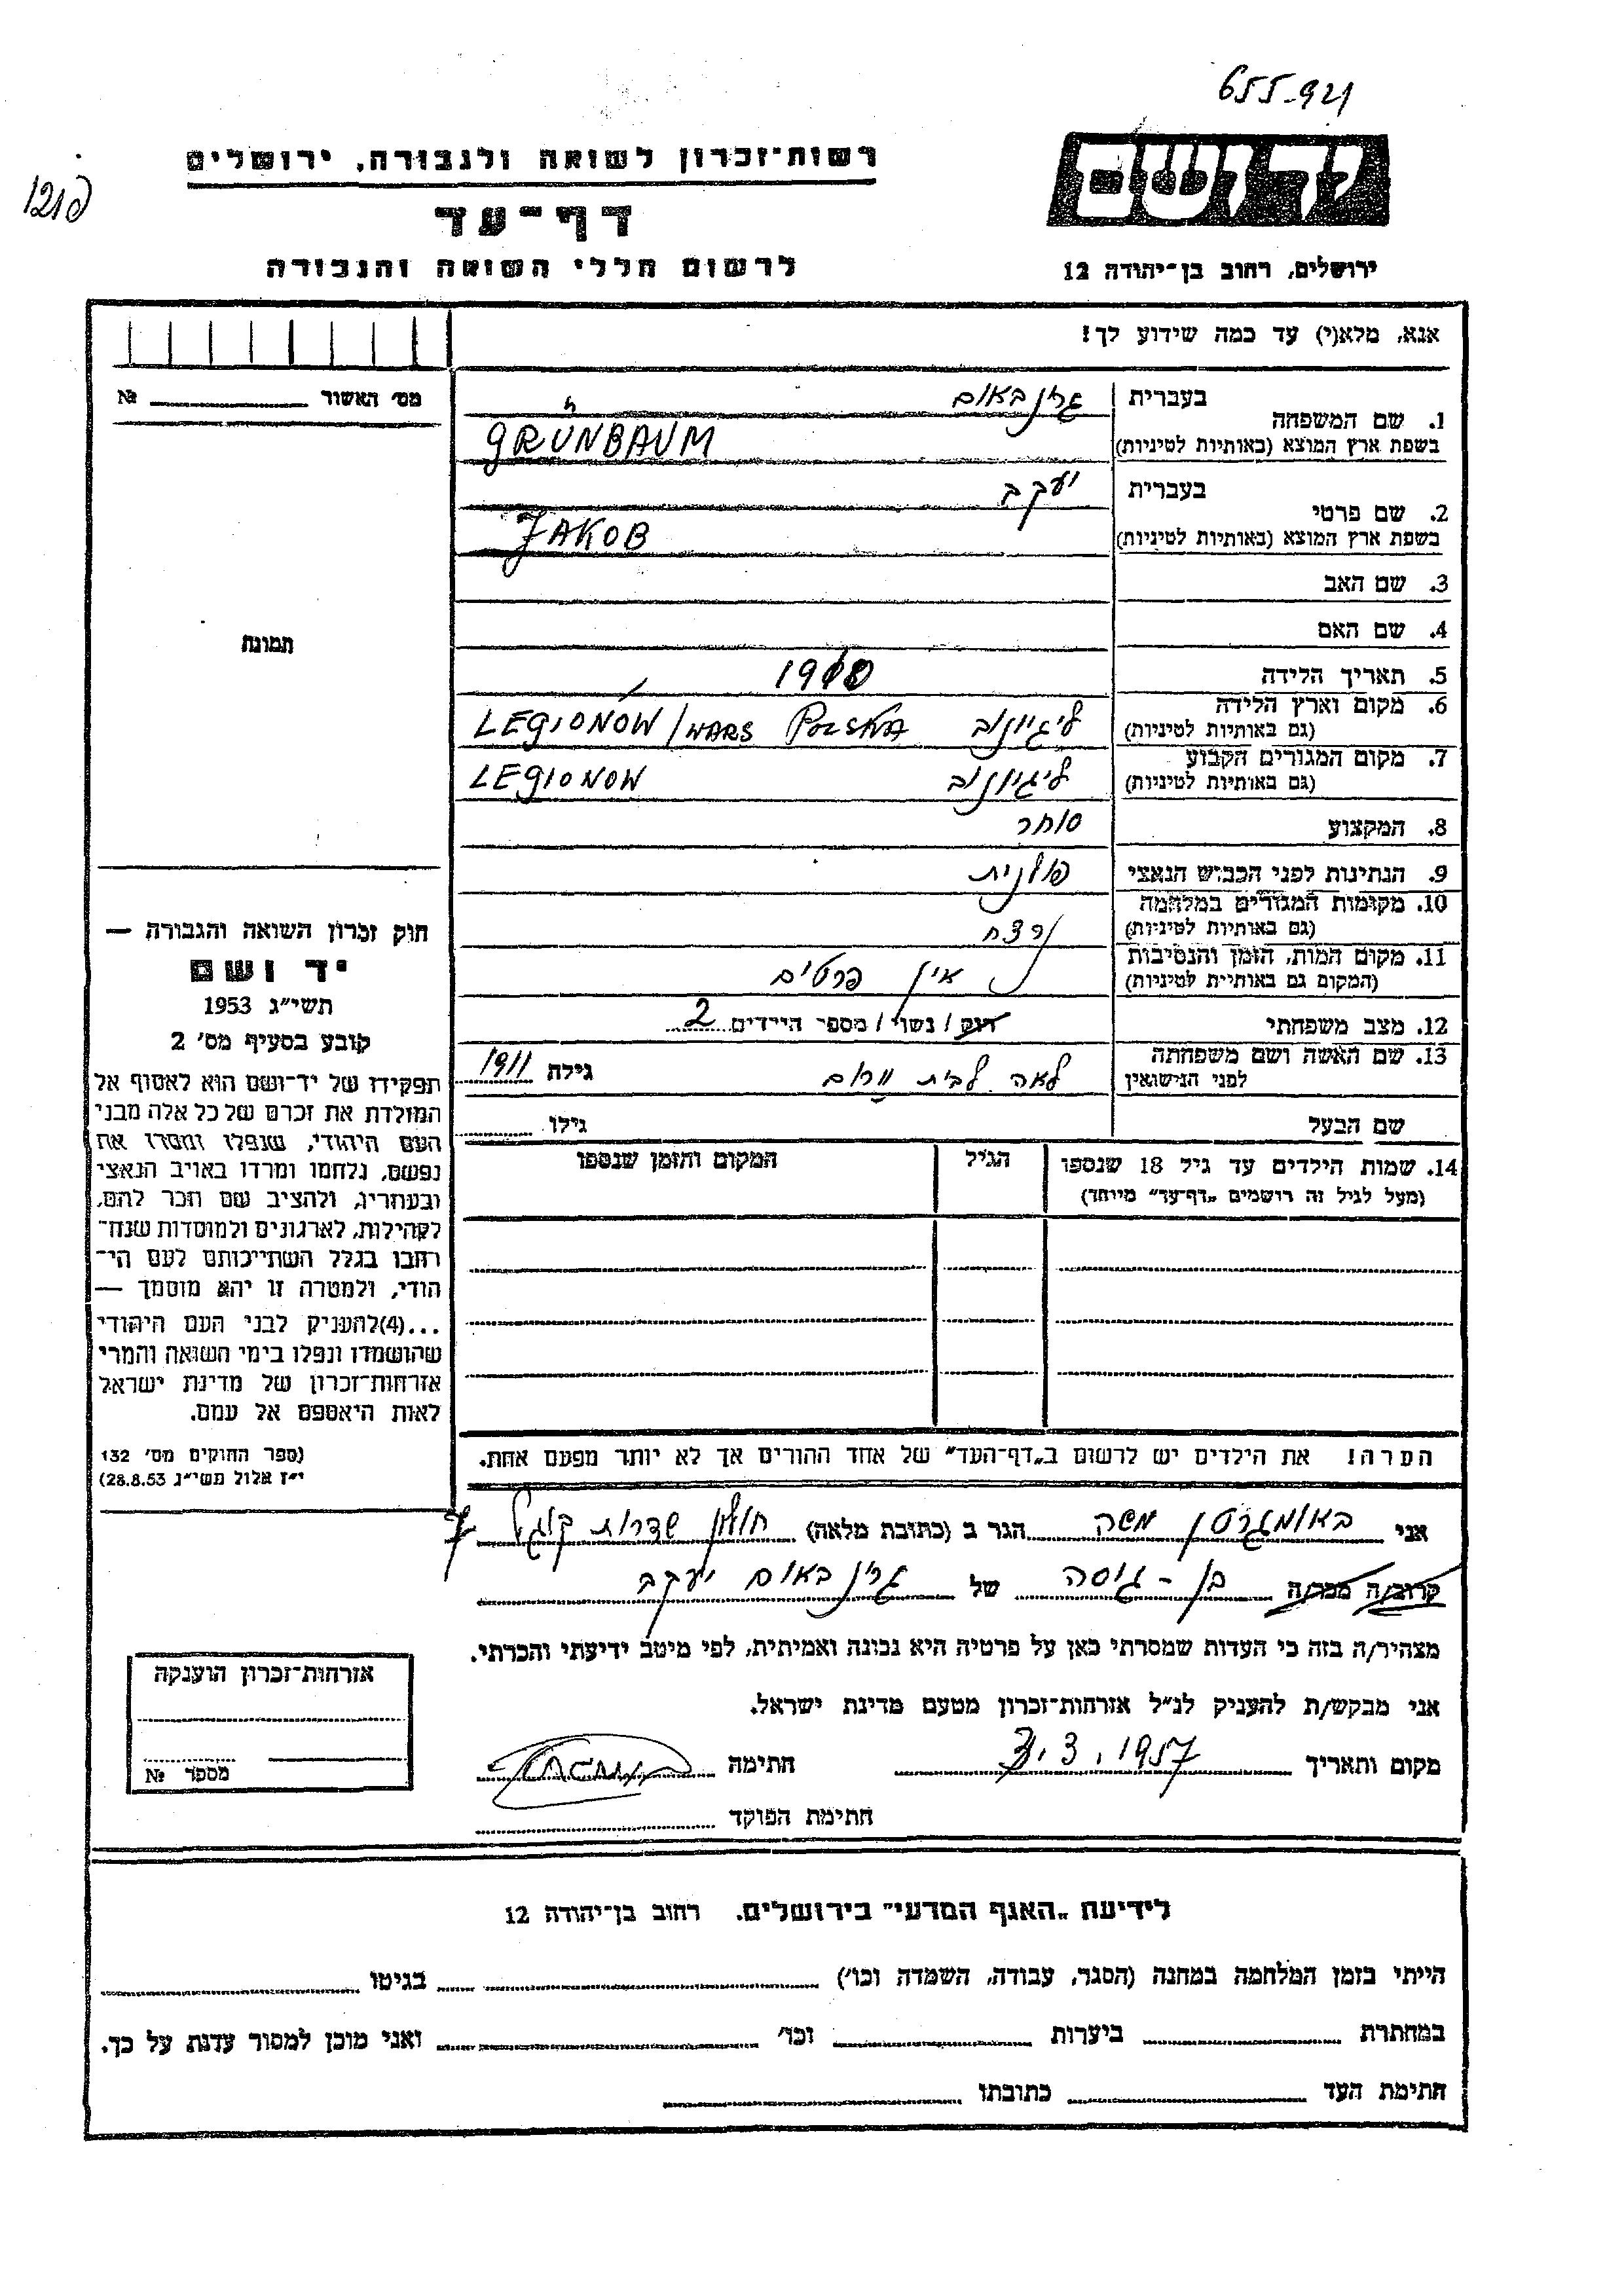 655-921
יד ושם
רשות־זכרון לשואה ולגבורה, ירושלים
דף־עד
ירושלים, רחוב בן־יהודה 12
לרשום חללי השואה והגבורה
אנא, מלא(י) עד כמה שידוע לך!
מס׳ האשור № 
1. שם המשפחה בעברית גרינבאום
בשפת ארץ המוצא (באותיות לטיניות) GRUNBAUM
2. שם פרטי בעברית יעקב
בשפת ארץ המוצא (באותיות לטיניות) JAKOB
3. שם האב
4. שם האם
תמונת
5. תאריך הלידה 1910
6. מקום וארץ הלידה (גם באותיות לטיניות) ליגיונוב LEGIONOW / WARS POLSKA
7. מקום המגורים הקבוע (גם באותיות לטיניות) ליגיונוב LEGIONOW
8. המקצוע סוחר
9. הנתינות לפני הכבוש הנאצי פולנית
10. מקומות המגורים במלחמה (גם באותיות לטיניות)
11. מקום המות, הזמן והנסיבות (המקום גם באותיות לטיניות) אין פרטים
12. מצב משפחתי רווק / נשוי / מספר הילדים 2
13. שם האשה ושם משפחתה לפני הנישואין לאה לבית גילה 1911
שם הבעל גילו
14. שמות הילדים עד גיל 18 שנספו הגיל המקום והזמן שנספו
(מעל לגיל זה רושמים „דף־עד״ מיוחד)
חוק זכרון השואה והגבורה —
יד ושם
תשי״ג 1953
קובע בסעיף מס׳ 2
תפקידו של יד־ושם הוא לאסוף אל
המולדת את זכרם של כל אלה מבני
העם היהודי, שנפלו ומסרו את
נפשם, נלחמו ומרדו באויב הנאצי
ובעוזריו, ולהציב שם וזכר להם,
לקהילות, לארגונים ולמוסדות שנח־
רבו בגלל השתייכותם לעם הי־
הודי, ולמטרה זו יהא מוסמך —
...(4)להעניק לבני העם היהודי
שהושמדו ונפלו בימי השואה והמרי
אזרחות־זכרון של מדינת ישראל
לאות היאספם אל עמם.
(ספר החוקים מס׳ 132
י״ז אלול תשי״ג 28.8.53)
הערה! את הילדים יש לרשום ב„דף־העד״ של אחד ההורים אך לא יותר מפעם אחת.
אני באומגרטן משה הגר ב (כתובת מלאה) חולון שדרות קוגל 7
קרוב/ה מכר/ה בן - גיסה של גרינבאום יעקב
מצהיר/ה בזה כי העדות שמסרתי כאן על פרטיה היא נכונה ואמיתית, לפי מיטב ידיעתי והכרתי.
אני מבקש/ת להעניק לנ״ל אזרחות־זכרון מטעם מדינת ישראל.
מקום ותאריך 3.1957 חתימה
חתימת הפוקד
אזרחות־זכרון הוענקה
מספר №
לידיעת „האגף המדעי״ בירושלים. רחוב בן־יהודה 12
הייתי בזמן המלחמה במחנה (הסגר, עבודה, השמדה וכו׳) בגיטו
במחתרת ביערות וכו׳ ואני מוכן למסור עדות על כך.
חתימת העד כתובתו